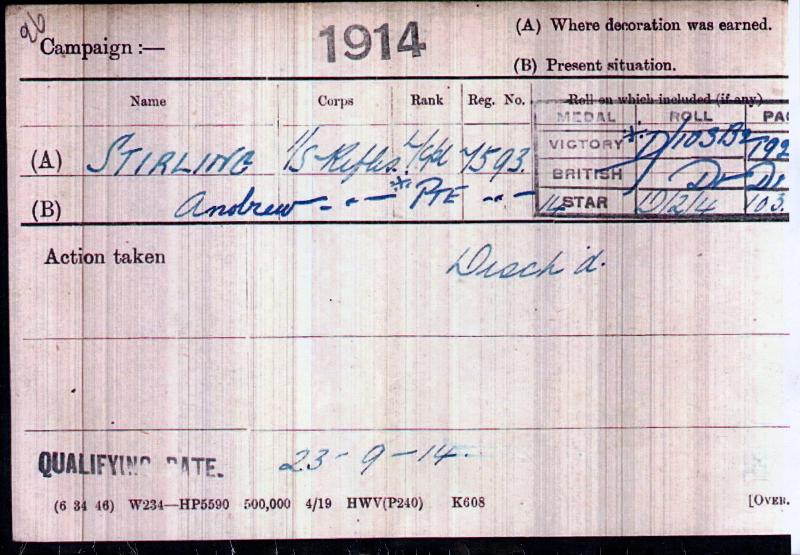 26
Campaign :— 1914 (A) Where decoration was earned.
(B) Present situation.
Name Corps Rank Reg. No. Roll on which included (if any)
MEDAL ROLL PA
(A) STIRLING 1/S. Rifles. L/Cpl 7593. VICTORY * D/103B2 792
BRITISH Do Do
(B) Andrew * PTE 14 STAR D/2/4 103.
Action taken Disch'd.
QUALIFYING DATE. 23-9-14.
(6 34 46) W234—HP5590 500,000 4/19 HWV(P240) K608 [OVER.